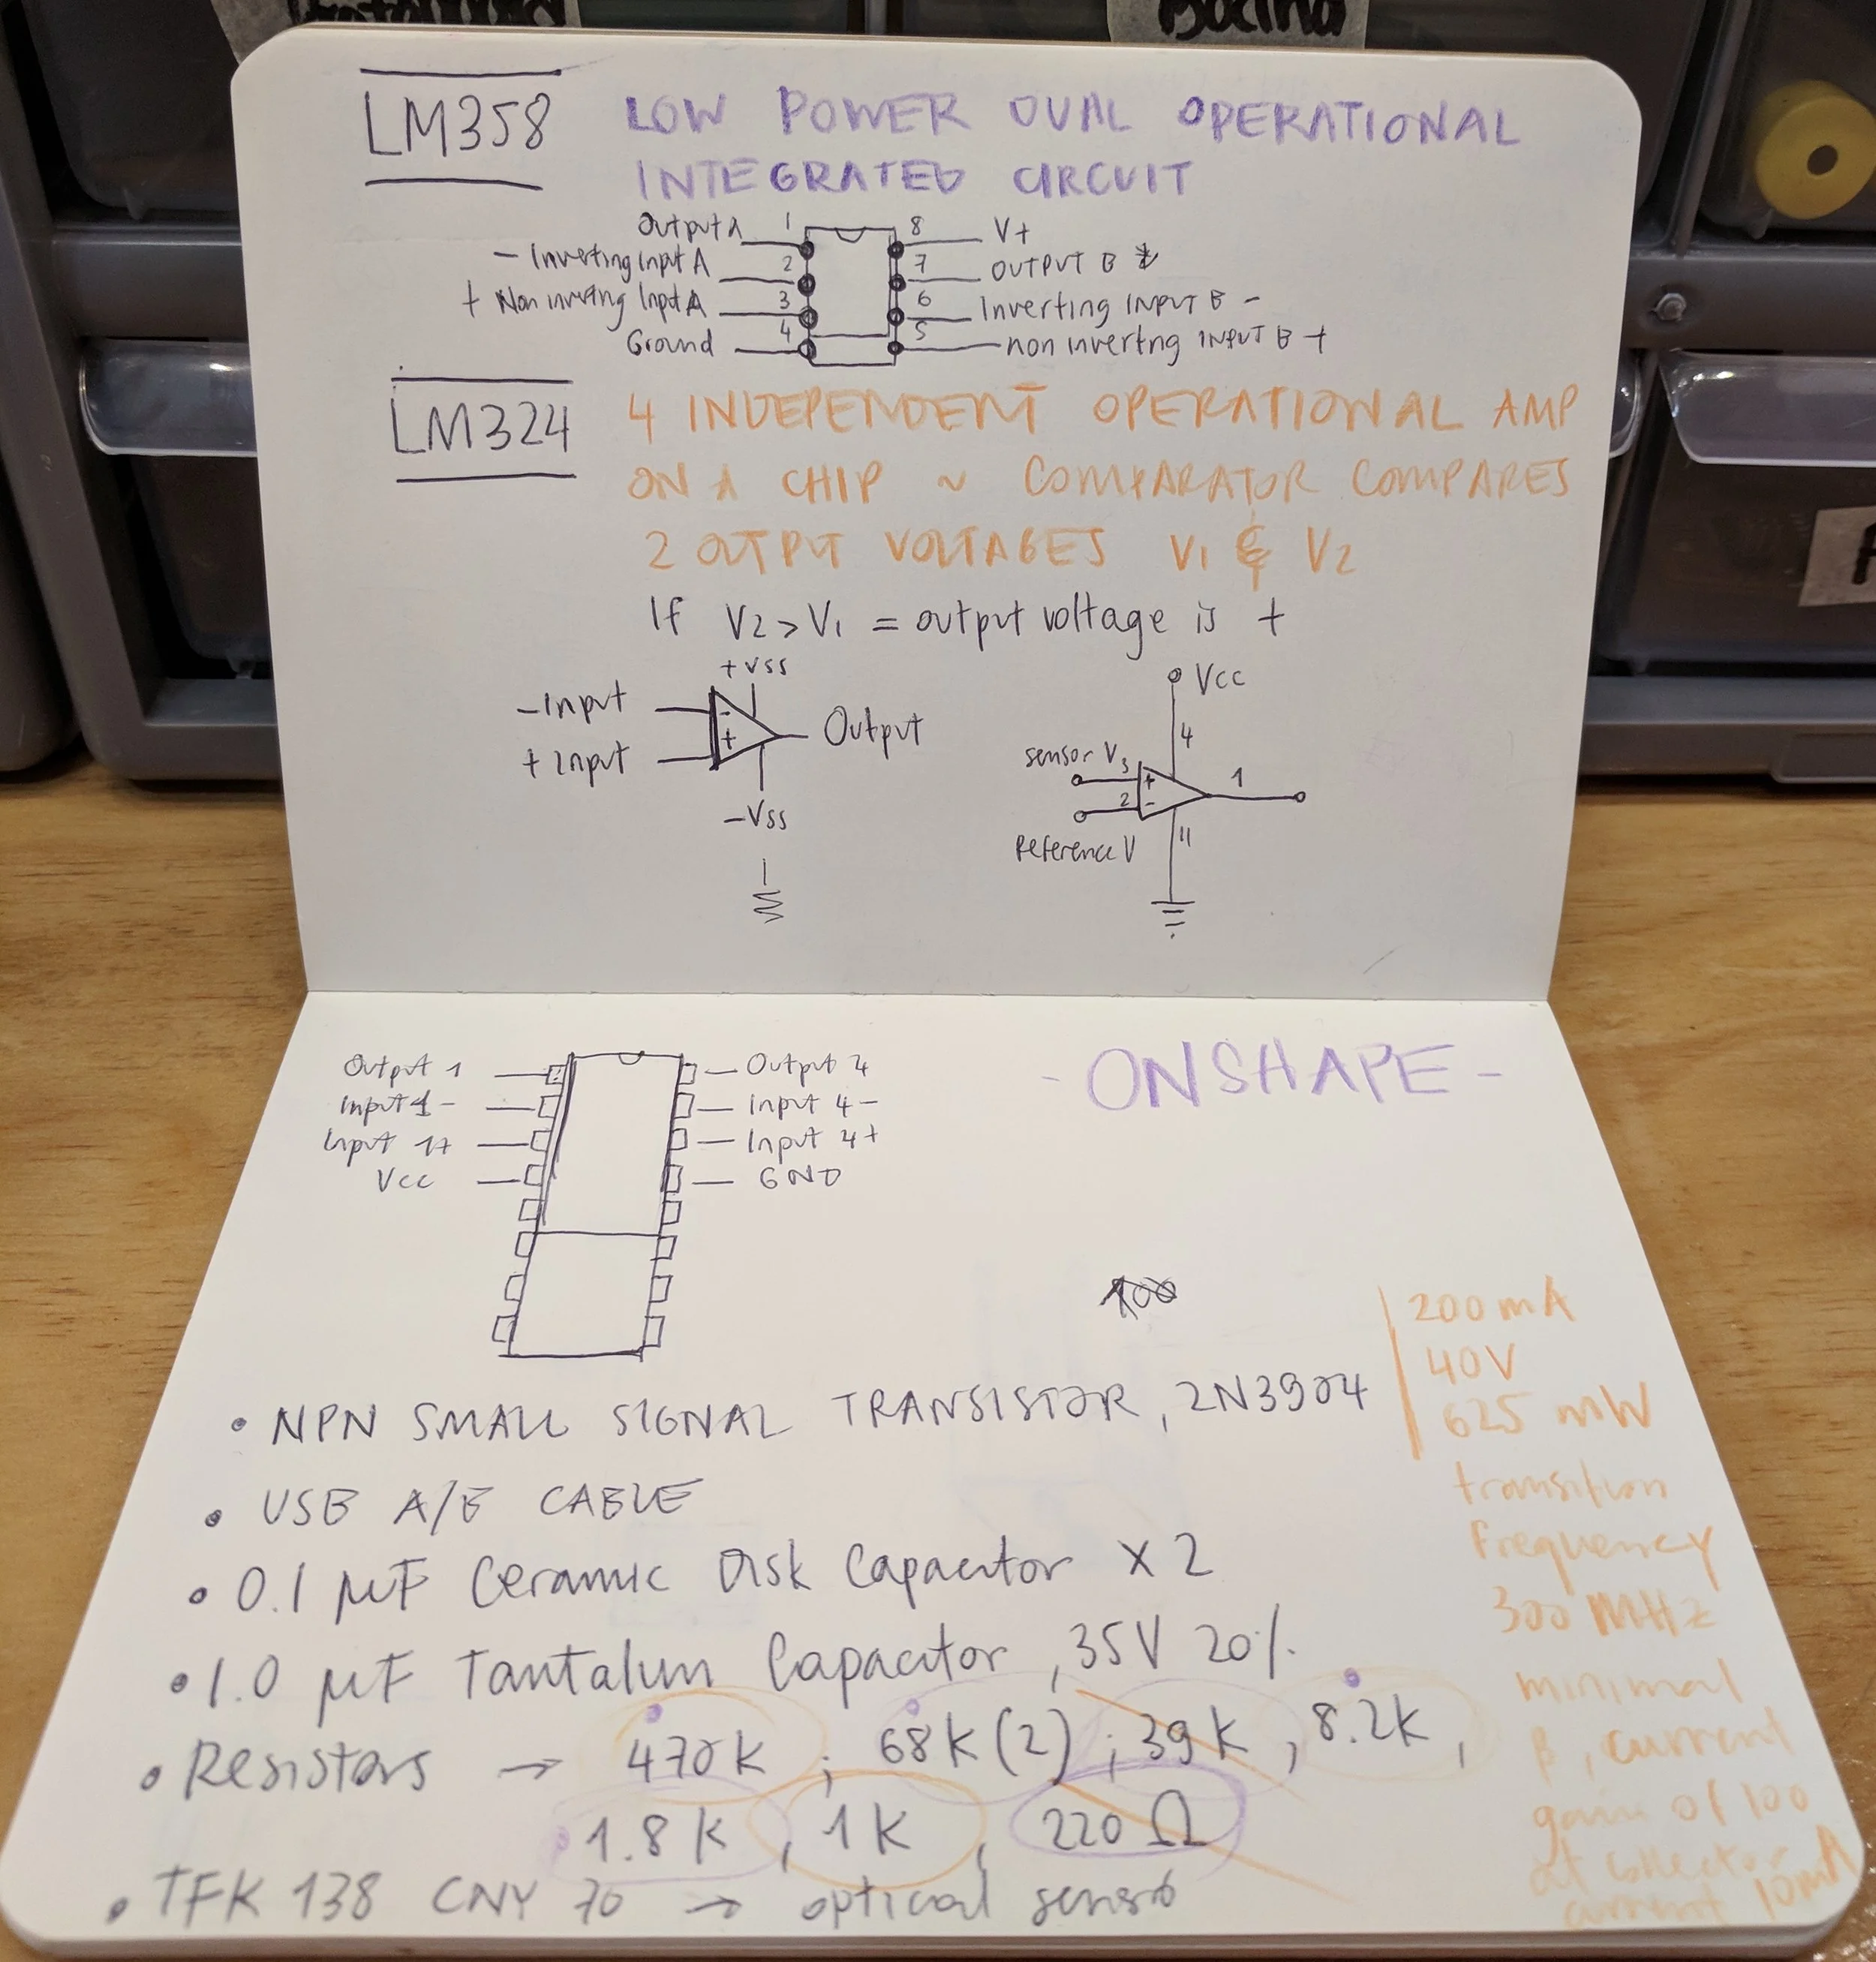 Bocina
LM358
LOW POWER DUAL OPERATIONAL
INTEGRATED CIRCUIT
Output A 1 8 V+
- Inverting Input A 2 7 OUTPUT B
+ Non inverting Input A 3 6 Inverting INPUT B -
Ground 4 5 non inverting INPUT B +
LM324
4 INDEPENDENT OPERATIONAL AMP
ON A CHIP ~ COMPARATOR COMPARES
2 OUTPUT VOLTAGES V1 & V2
If V2 > V1 = output voltage is +
+VSS
-Input - Output
+ Input +
-VSS
Vcc
4
sensor V 3 + 1
2 -
Reference V 11
Output 1 Output 4
Input 1 - Input 4 -
Input 1+ Input 4+
Vcc GND
- ONSHAPE -
100
• NPN SMALL SIGNAL TRANSISTOR, 2N3904
• USB A/B CABLE
• 0.1 µF Ceramic Disk Capacitor x 2
• 1.0 µF Tantalum Capacitor, 35V 20%
• Resistors → 470K ; 68K (2) ; 39K , 8.2K ,
1.8K , 1K , 220 Ω
• TFK 138 CNY 70 → optical sensor
200 mA
40V
625 mW
transition
frequency
300 MHz
minimal
β, current
gain of 100
at collector
current 10mA